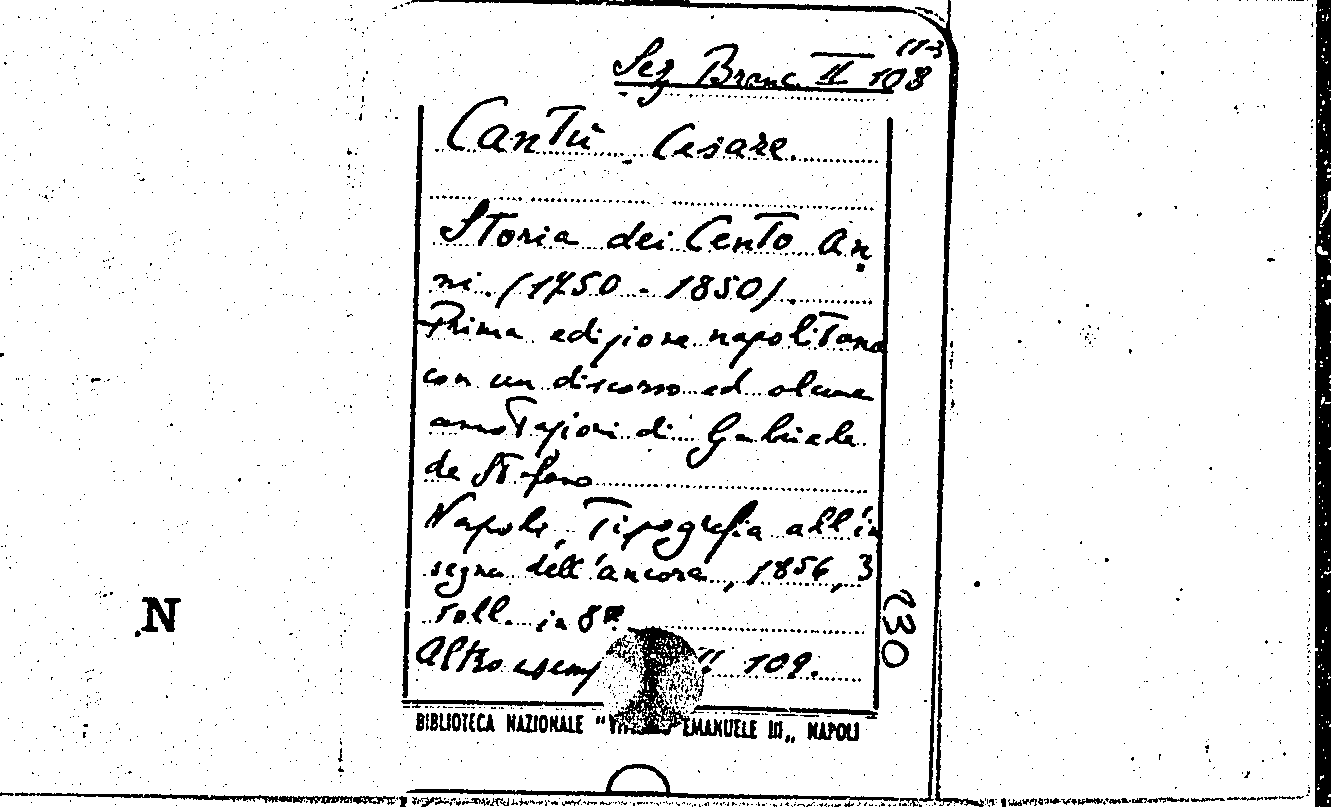 113
Sez Branc. II 108
Cantù Cesare.
Storia dei Cento an
ni (1750 - 1850).
Prima edizione napolitana
con un discorso ed alcune
annotazioni di Gabriele
de Stefano
Napoli, Tipografia all'in
segna dell'ancora, 1856, 3
voll. in 8º.
Altro esemp II 109.
130
N
BIBLIOTECA NAZIONALE "VITTORIO EMANUELE III" NAPOLI